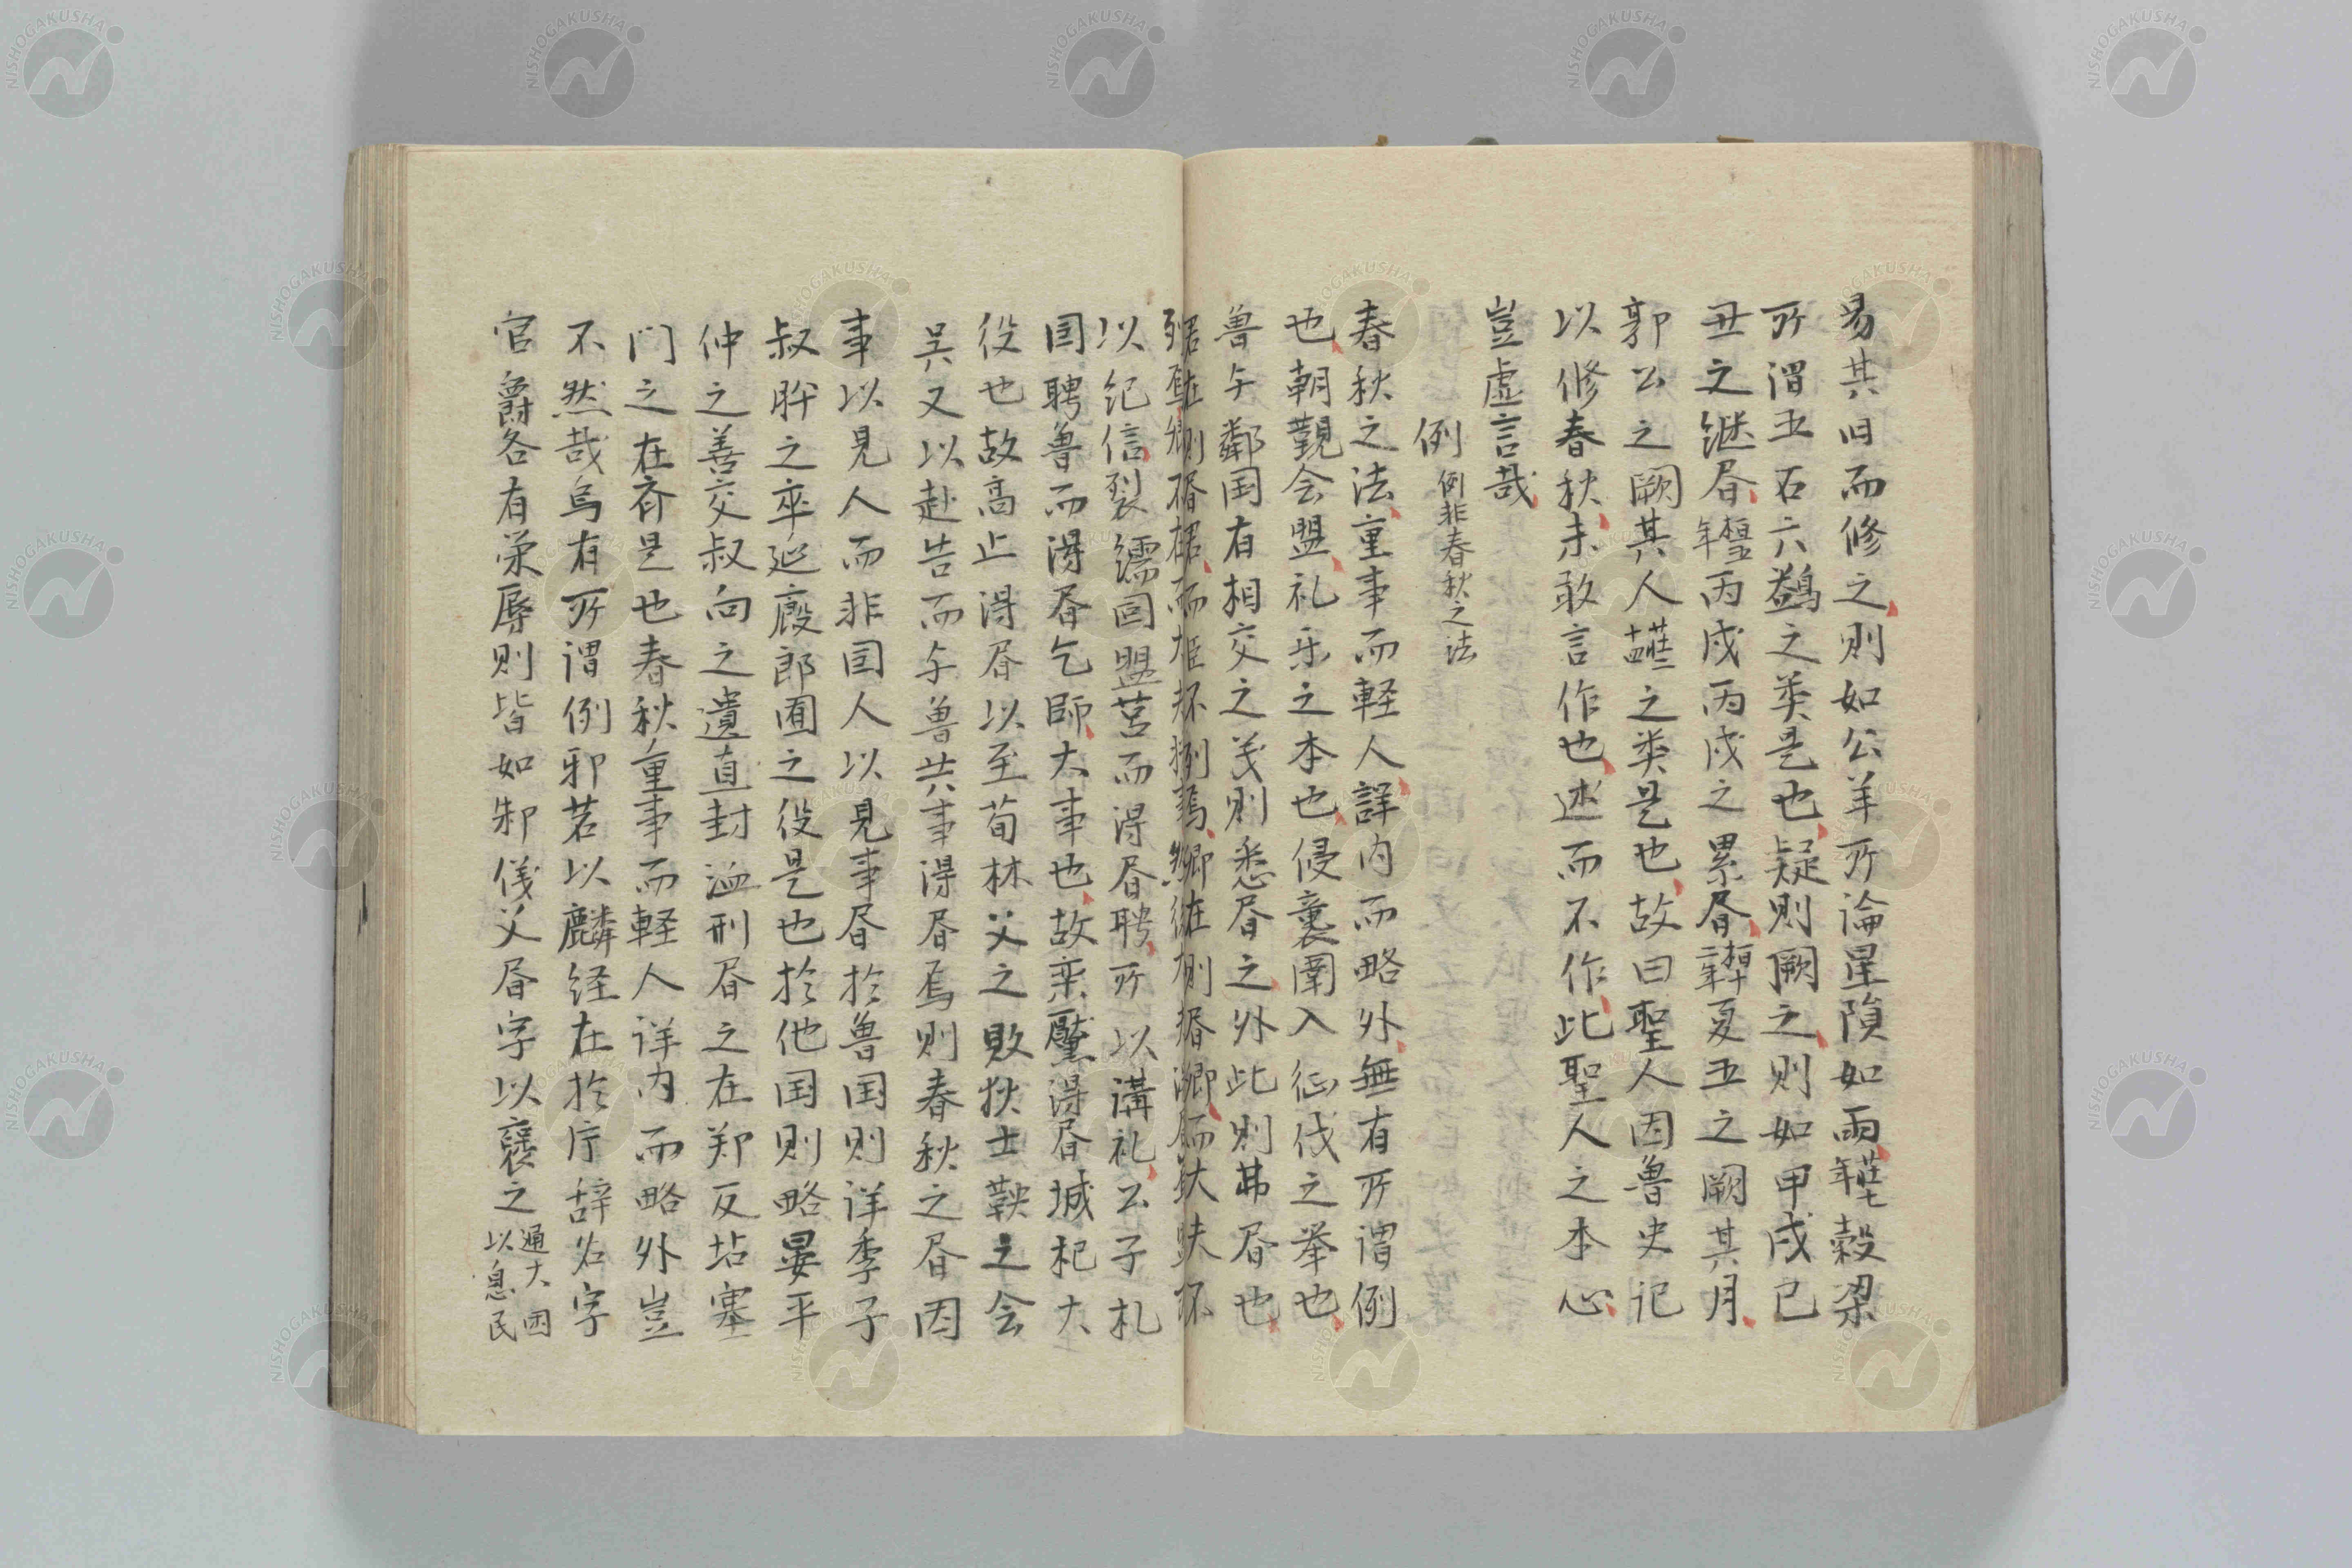 易其旧而修之則如公羊所論星隕如雨莊七年穀梁
所謂五石六鷁之类是也疑則闕之則如甲戌已
丑之継昏桓五年丙戌丙戌之累昏桓十二年夏五之闕其月
郭公之闕其人莊二十四之类是也故曰聖人因魯史记
以修春秋未敢言作也述而不作此聖人之本心
豈虚言哉
例 例非春秋之法
春秋之法重事而軽人詳内而略外無有所謂例
也朝覲会盟礼乐之本也侵襄圍入征伐之举也
魯与鄰国有相交之义則悉昏之外此則弗昏也
以纪信裂繻回盟莒而得昏聘所以講礼公子札
国聘魯而得昏乞師大事也故栾黶得昏城杞大
役也故高止得昏以至荀林父之败狄士鞅之会
吴又以赴告而与魯共事得昏焉则春秋之昏因
事以見人而非国人以見事昏於魯国则详季子
叔肸之卒巡廄郎囿之役是也於他国則略晏平
仲之善交叔向之遺直封洫刑昏之在郑反坫塞
门之在齐是也春秋重事而軽人详内而略外豈
不然哉烏有所謂例邪若以麟经在於序辞名字
官爵各有栄辱则皆如邾儀父昏字以襃之通大国以息民